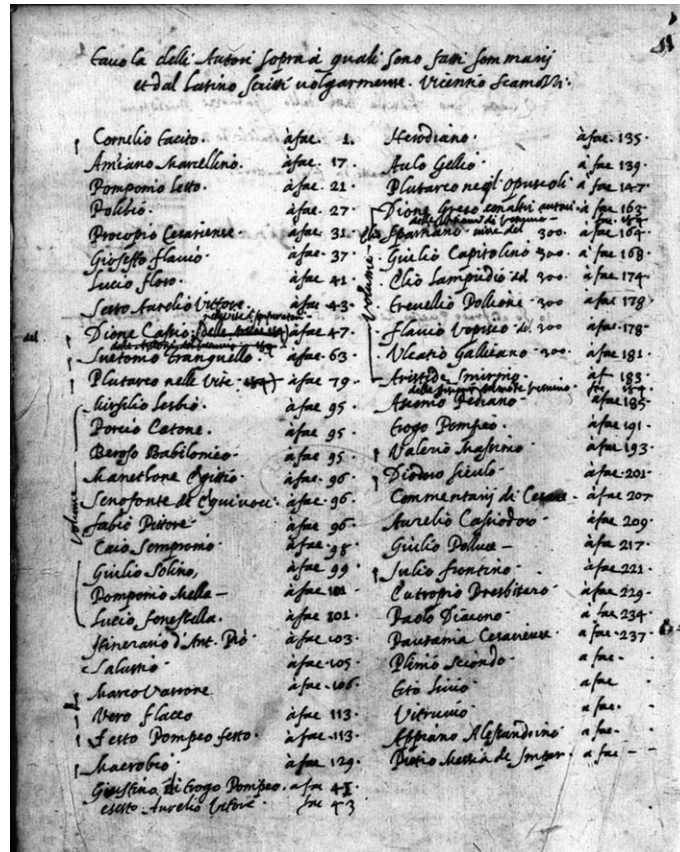 Tavola delli Autori sopra i quali sono fatti sommarij
et dal latino scritti volgarmente. Vicentio Scamozzi.
Cornelio Tacito. à fac. 1.
Amiano Marcellino. à fac. 17.
Pomponio Leto. à fac. 21.
Polibio. à fac. 27.
Procopio Cesariense. à fac. 31.
Gioseffo Flavio. à fac. 37.
Lucio Floro. à fac. 41.
Sesto Aurelio Vittore. à fac. 43.
Dione Cassio à fac. 47.
Suetonio Tranquillo. à fac. 63.
Plutarco nelle Vite à fac. 79.
Mirsilio Lesbio. à fac. 95
Porcio Catone. à fac. 95
Beroso Babilonico. à fac. 95.
Manethone Egittio à fac. 96.
Senofonte de Equivoci à fac. 96.
Fabio Pittore. à fac. 96
Caio Sempronio. à fac. 98
Giulio Solino, à fac. 99
Pomponio Mella à fac. 101
Lucio Fenestella. à fac. 101.
Itinerario d'Ant. Pio à fac. 103.
Salustio à fac. 105
Marco Varrone à fac. 106
Vero Flacco à fac. 113.
Festo Pompeo festo. à fac. 113.
Macrobio à fac. 129.
Giustino di Trogo Pompeo. à fac 41
Sesto Aurelio Vittore. fac 43
Volume
Herodiano. à fac. 135
Aulo Gellio à fac. 139
Plutarco negl'opuscoli à fac 147
Dione Greco con altri autori à fac 163
Spartiano 300. à fac 164
Giulio Capitolino 300. à fac 168
Elio Lampridio del 300. à fac 174
Trevellio Pollione 300 à fac 178
Flavio Vopisco de. 300 à fac. 178
Vlcatio Gallicano 300. à fac 181
Aristide Smirnio. à f 183
Asconio Pediano à fac 185
Trogo Pompeo. à fac 191
Valerio Massimo à fac 193
Diodoro Siculo à fac. 201
Commentarij di Cesare à fac 207
Aurelio Cassiodoro à fac. 209
Giulio Polluce à fac 217
Julio Frontino. à fac. 221
Eutropio Presbitero à fac. 229
Paolo Diacono à fac 234
Pausania Cesariense à fac. 237
Plinio Secondo a fac.
Tito Livio a fac
Vitruvio a fac.
Appiano Alessandrino a fac.
Pietro Messia de Imper. a fac
Volume